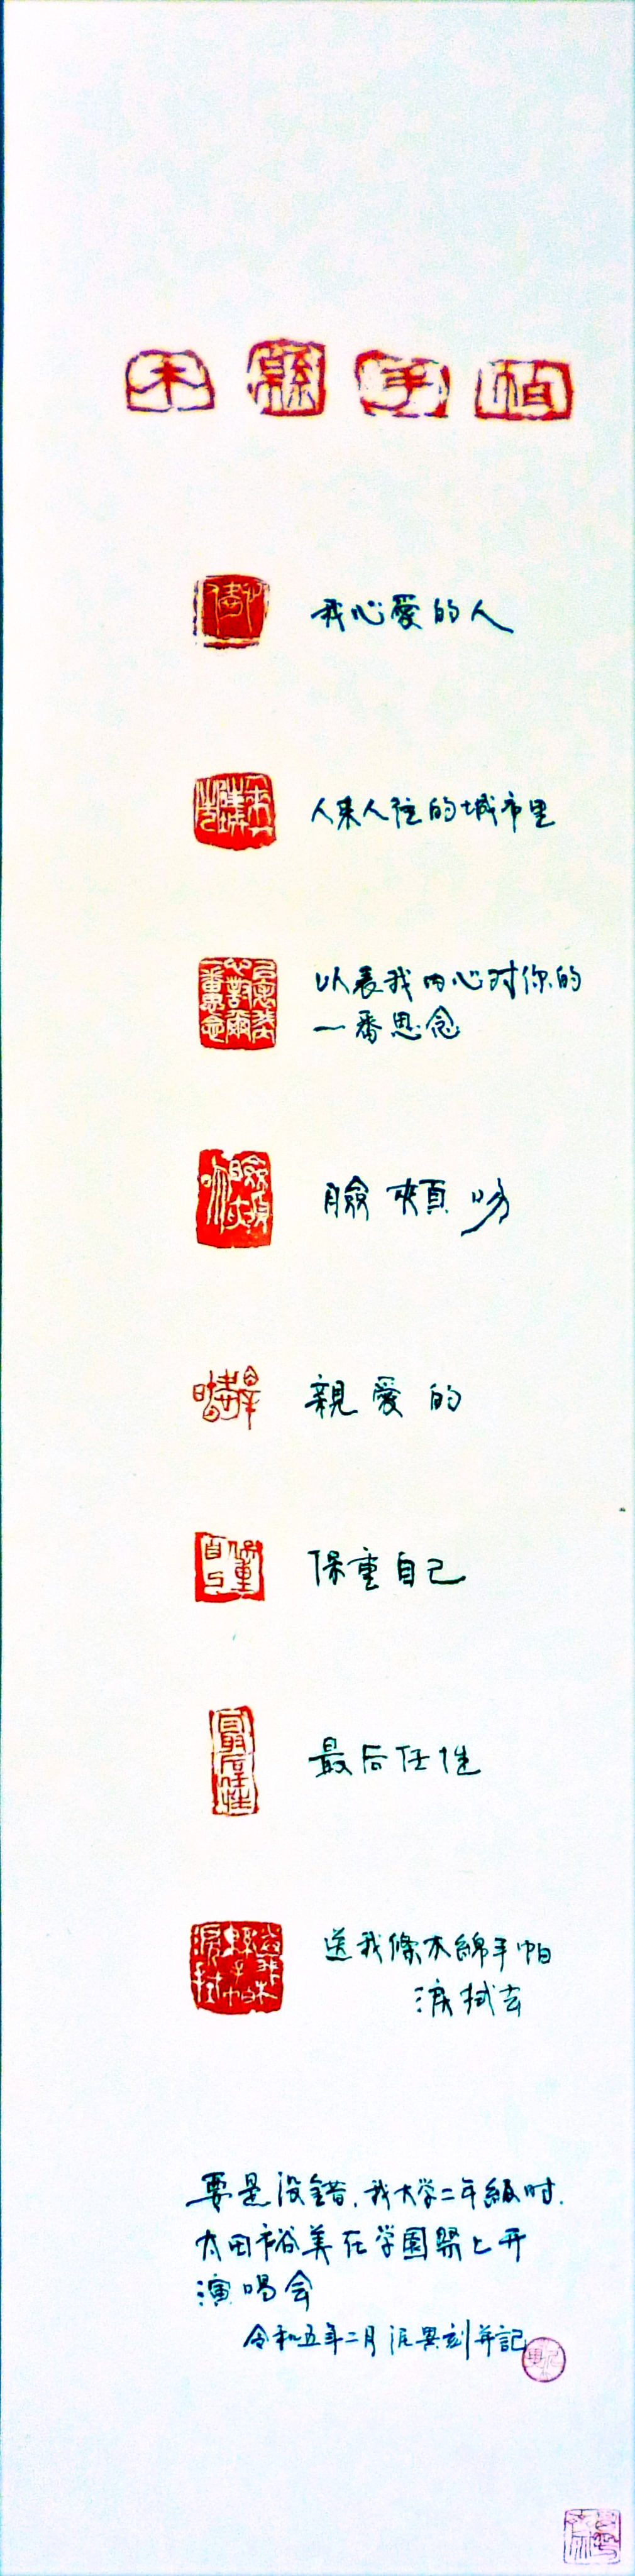 木緜手帕
我心愛的人
人来人往的城市里
以表我内心对你的
一番思念
臉頰吻
親愛的
保重自己
最后任性
送我條木綿手帕
淚拭去
要是没錯，我大学二年級时，
太田裕美在学園祭上开
演唱会
令和五年二月 泥異刻并記